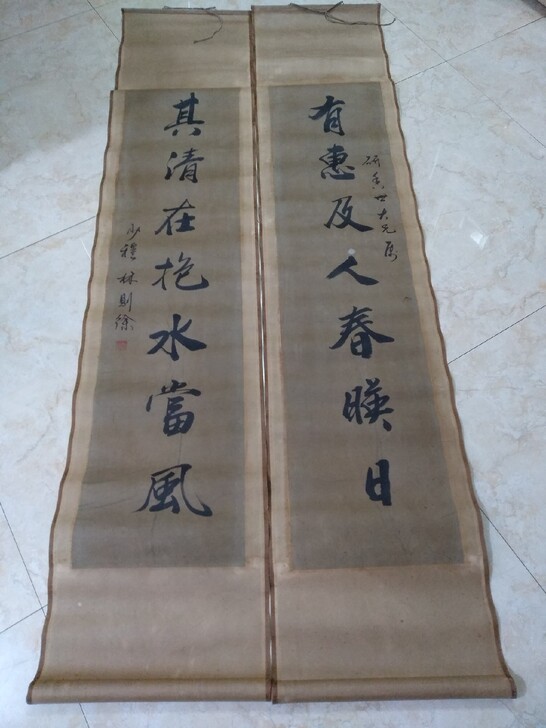 有惠及人春暎日
研香世大兄属
其清在抱水當風
少穆林則徐